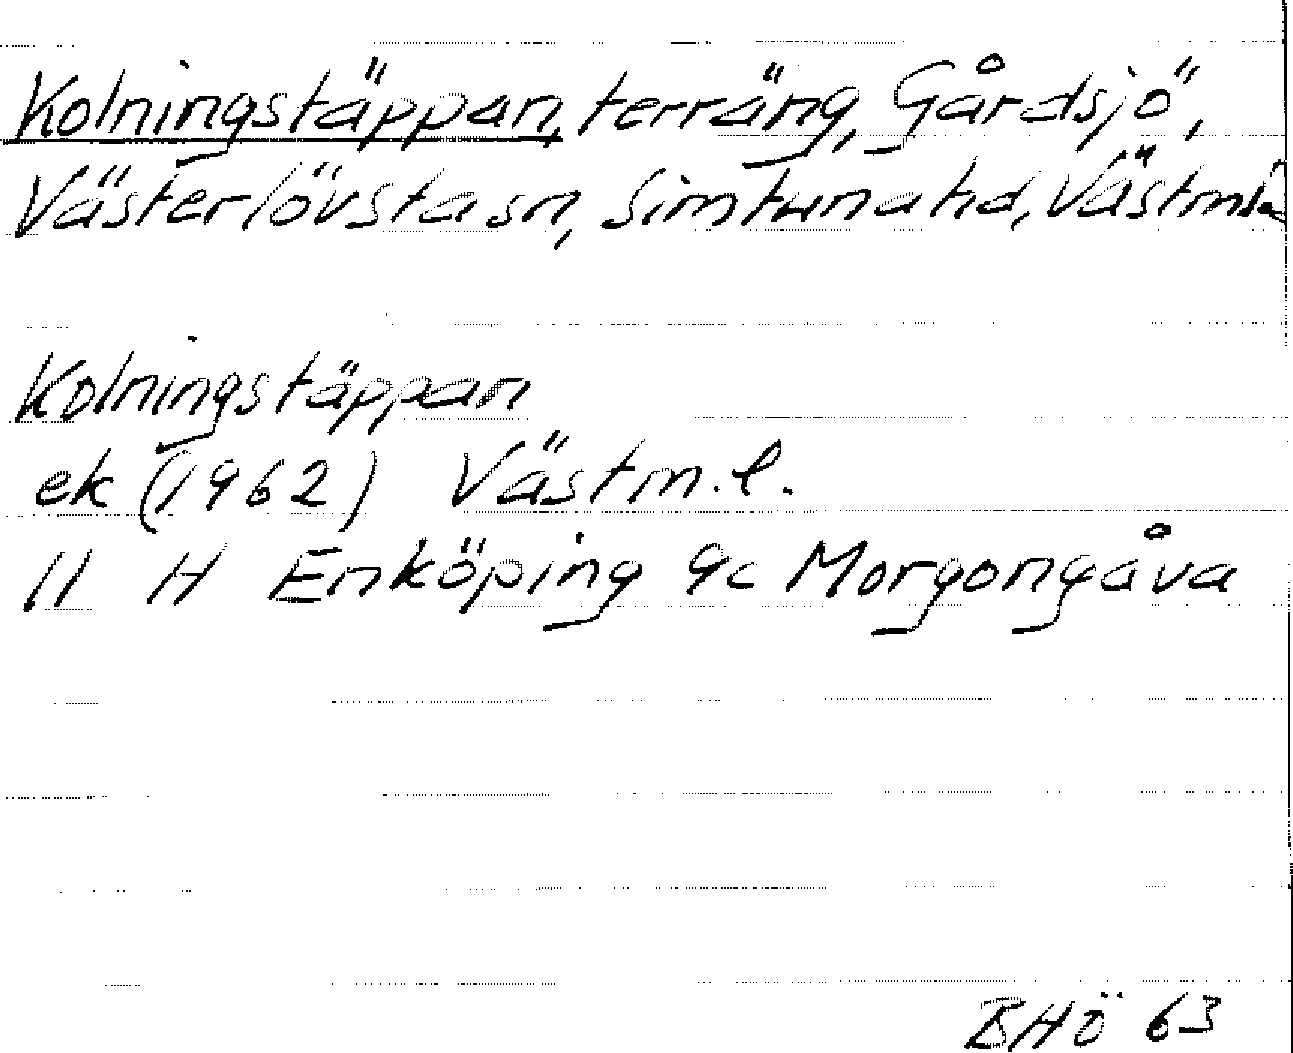 Kolningstäppan, terräng, Gårdsjö,
Västerlövsta sn, Simtuna hd, Västml
Kolningstäppan
ek (1962) Västm. l.
11 H Enköping 9c Morgongåva
BHÖ 63